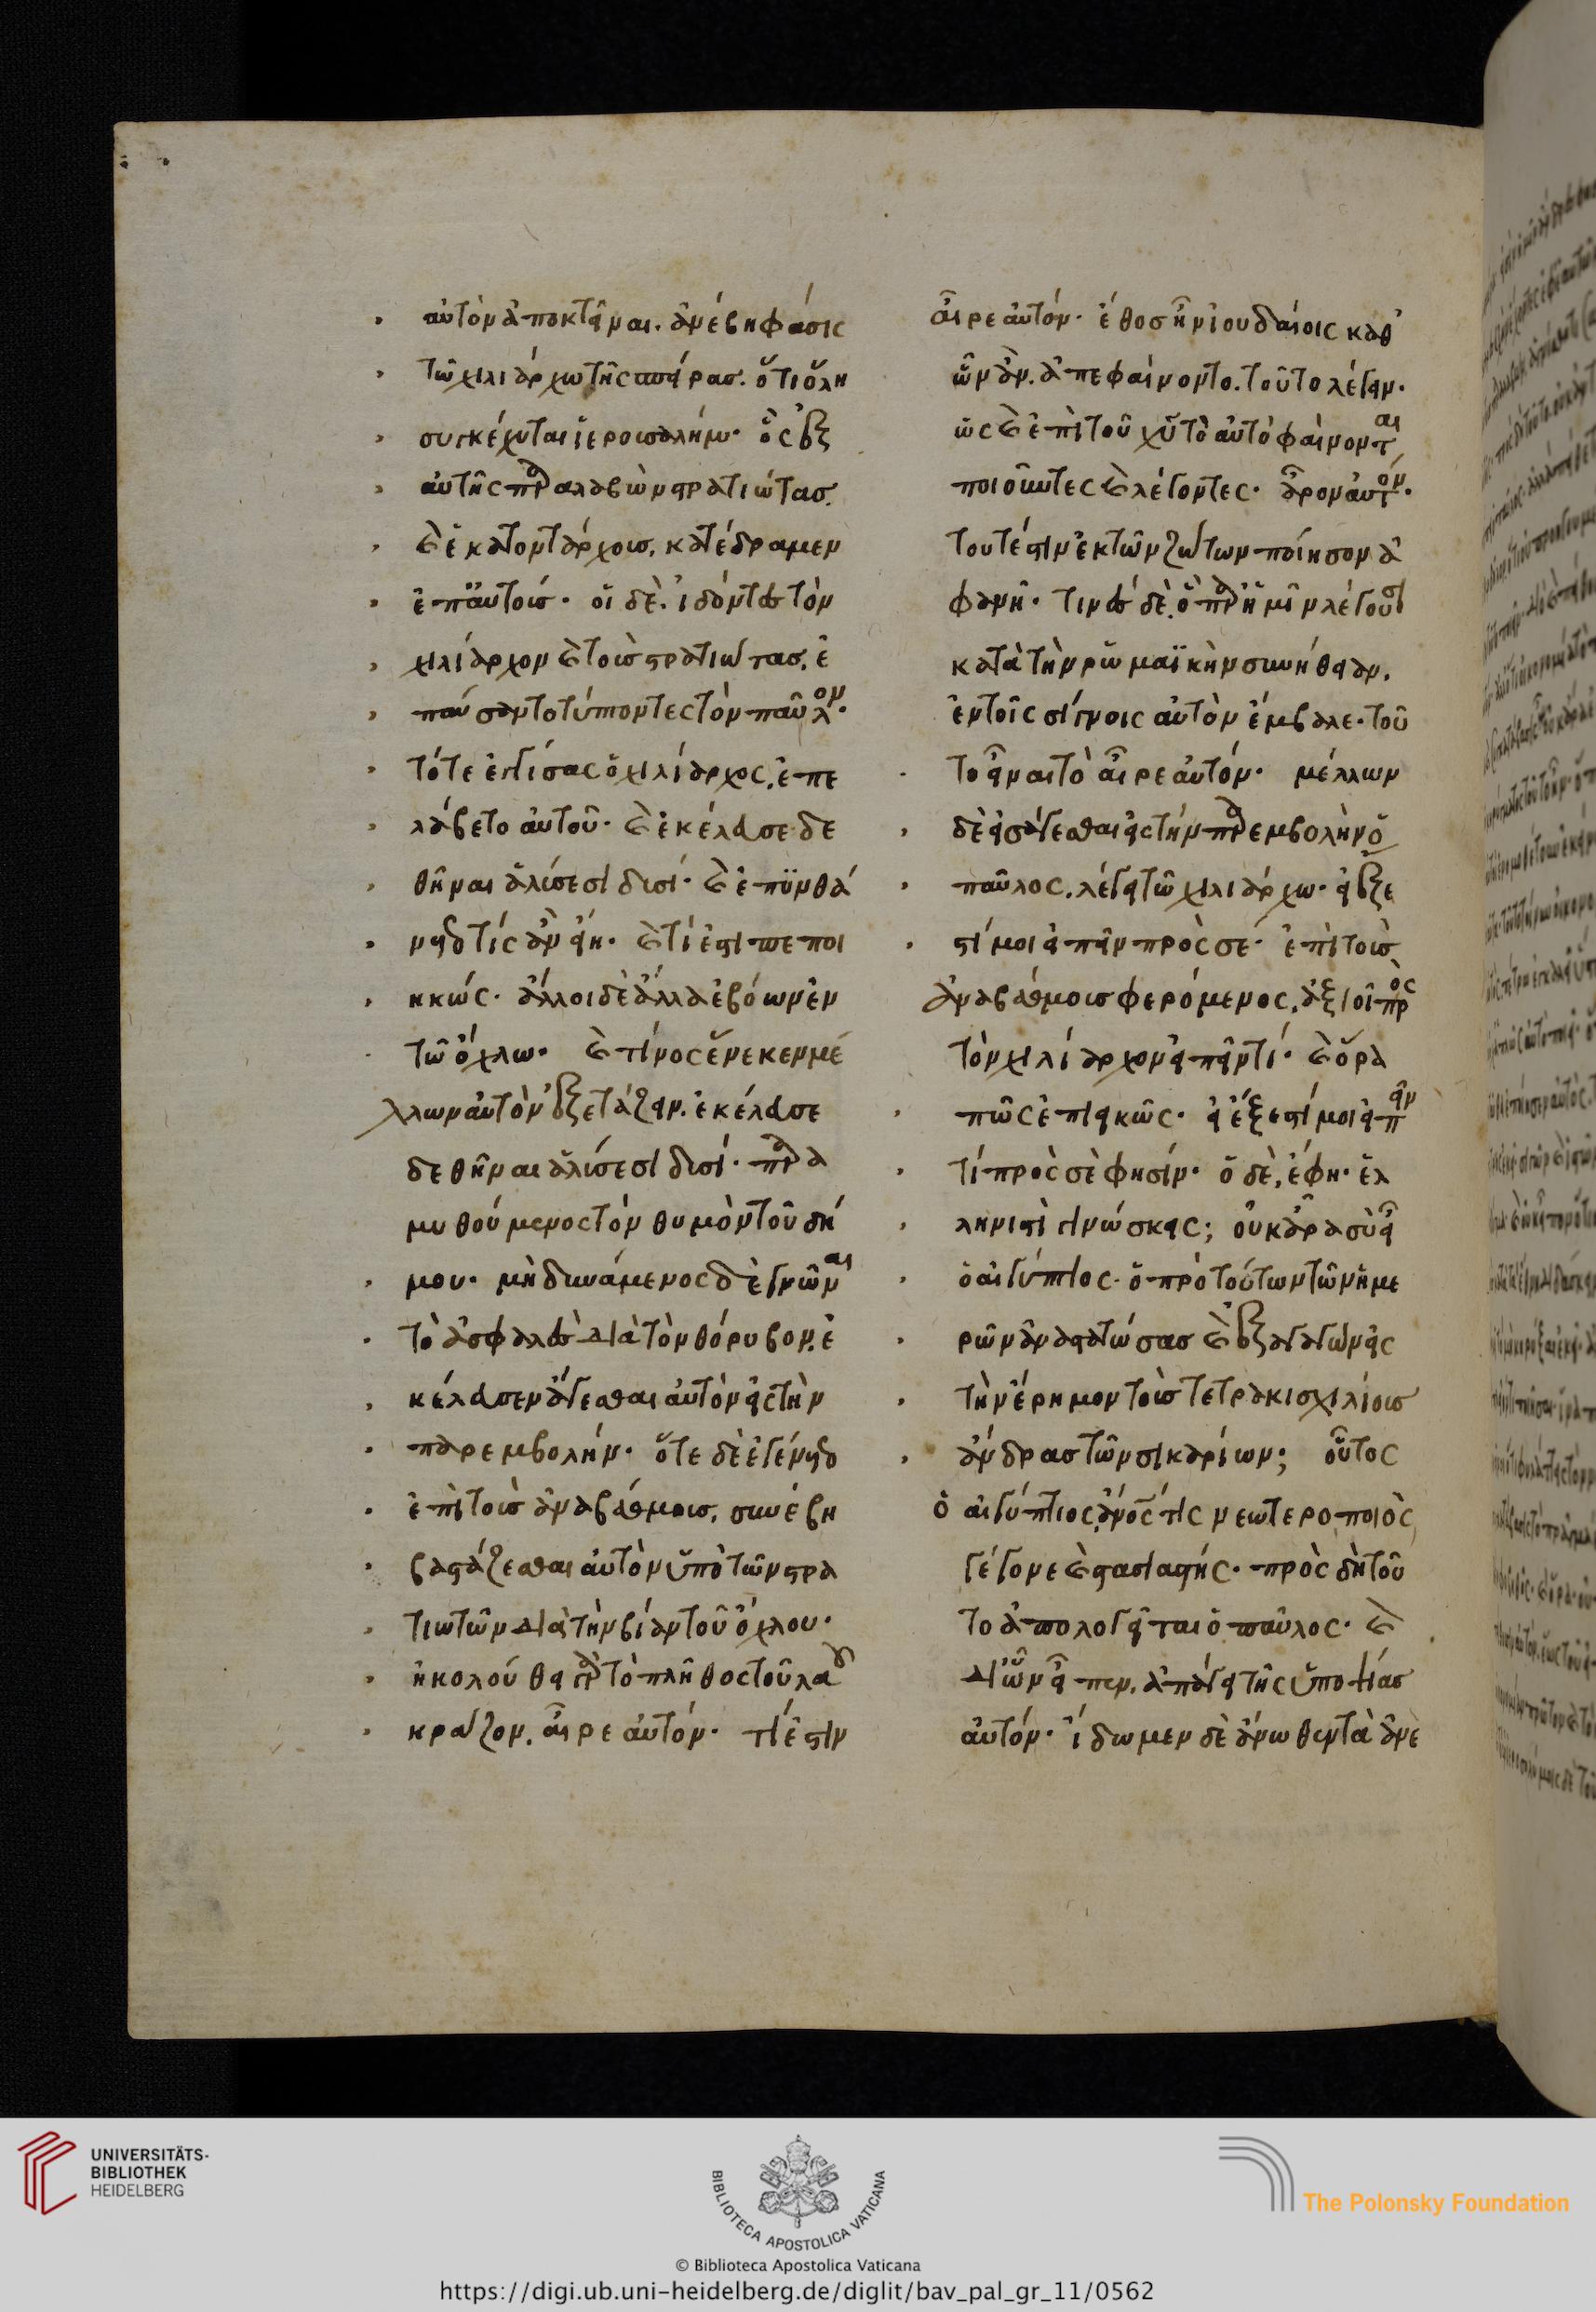 αὐτὸν ἀποκτεῖναι. ἀνέβη φάσις
τῶ χιλιάρχω τῆς σπείρας. ὅτι ὅλη
συγκέχυται ἱερουσαλήμ· ὃς ἐξ
αὐτῆς παραλαβὼν στρατιώτας.
καὶ ἑκατοντάρχους, κατέδραμεν
ἐπ' αὐτούς· οἱ δὲ. ἰδόντες τὸν
χιλίαρχον καὶ τοὺς στρατιώτας, ἐ
παύσαντο τύπτοντες τὸν παῦλον·
τότε ἐγγίσας ὁ χιλίαρχος, ἐπε
λάβετο αὐτοῦ· καὶ ἐκέλευσε δε
θῆναι ἁλύσεσι δυσί· καὶ ἐπυνθά
νετο τίς ἂν εἴη· καὶ τί ἐστι πεποι
ηκώς· ἄλλοι δὲ ἄλλα ἐβόων ἐν
τῶ ὄχλω· καὶ τίνος ἕνεκεν μέ
λλων αὐτὸν ἐξετάζειν. ἐκέλευσε
δεθῆναι ἁλύσεσι δυσί· παρα
μυθούμενος τὸν θυμὸν τοῦ δή
μου· μὴ δυνάμενος δὲ γνῶναι
τὸ ἀσφαλὲς διὰ τὸν θόρυβον, ἐ
κέλευσεν ἄγεσθαι αὐτὸν εἰς τὴν
παρεμβολήν· ὅτε δὲ ἐγένετο
ἐπὶ τοὺς ἀναβάθμους, συνέβη
βαστάζεσθαι αὐτὸν ὑπὸ τῶν στρα
τιωτῶν διὰ τὴν βίαν τοῦ ὄχλου·
ἠκολούθει γὰρ τὸ πλῆθος τοῦ λαοῦ
κράζον, αἶρε αὐτόν· τί ἐστιν
αἶρε αὐτόν· ἔθος ἦν ἰουδαίοις καθ'
ὧν ἂν. ἀπεφαίνοντο. τοῦτο λέγειν.
ὡς καὶ ἐπὶ τοῦ χυ τὸ αὐτὸ φαίνονται
ποιοῦντες καὶ λέγοντες· ἆρον αὐτόν.
τουτέστιν ἐκ τῶν ζώντων ποίησον ἀ
φανῆ· τινὲς δὲ. ὃ παρ' ἡμῖν λέγουσι
κατὰ τὴν ῥωμαϊκὴν συνήθειαν.
ἐν τοῖς σίγνοις αὐτὸν ἔμβαλε· τοῦ
το εἶναι τὸ αἶρε αὐτόν· μέλλων
δὲ εἰσάγεσθαι εἰς τὴν παρεμβολὴν ὁ
παῦλος. λέγει τῶ χιλιάρχω· εἰ ἔξε
στί μοι εἰπεῖν πρὸς σέ· ἐπὶ τοὺς
ἀναβάθμους φερόμενος, ἀξιοῖ πρὸς
τὸν χιλίαρχον εἰπεῖν τί· καὶ ὅρα
πῶς ἐπιεικῶς· εἰ ἔξεστί μοι εἰπεῖν
τί πρὸς σὲ φησίν· ὁ δὲ, ἔφη· ἑλ
ληνιστὶ γινώσκεις; οὐκ ἄρα σὺ εἶ
ὁ αἰγύπτιος· ὁ πρὸ τούτων τῶν ἡμε
ρῶν ἀναστατώσας καὶ ἐξαγαγὼν εἰς
τὴν ἔρημον τοὺς τετρακισχιλίους
ἄνδρας τῶν σικαρίων; οὗτος
ὁ αἰγύπτιος, ἀνός τις νεωτεροποιὸς
γέγονε καὶ στασιαστής· πρὸς δὴ τοῦ
το ἀπολογεῖται ὁ παῦλος· καὶ
δι' ὧν εἶπεν, ἀπάγει τῆς ὑποψίας
αὐτόν· ἴδωμεν δὲ ἄνωθεν τὰ ἀνε
UNIVERSITÄTS-
BIBLIOTHEK
HEIDELBERG
BIBLIOTECA APOSTOLICA VATICANA
© Biblioteca Apostolica Vaticana
The Polonsky Foundation
https://digi.ub.uni-heidelberg.de/diglit/bav_pal_gr_11/0562